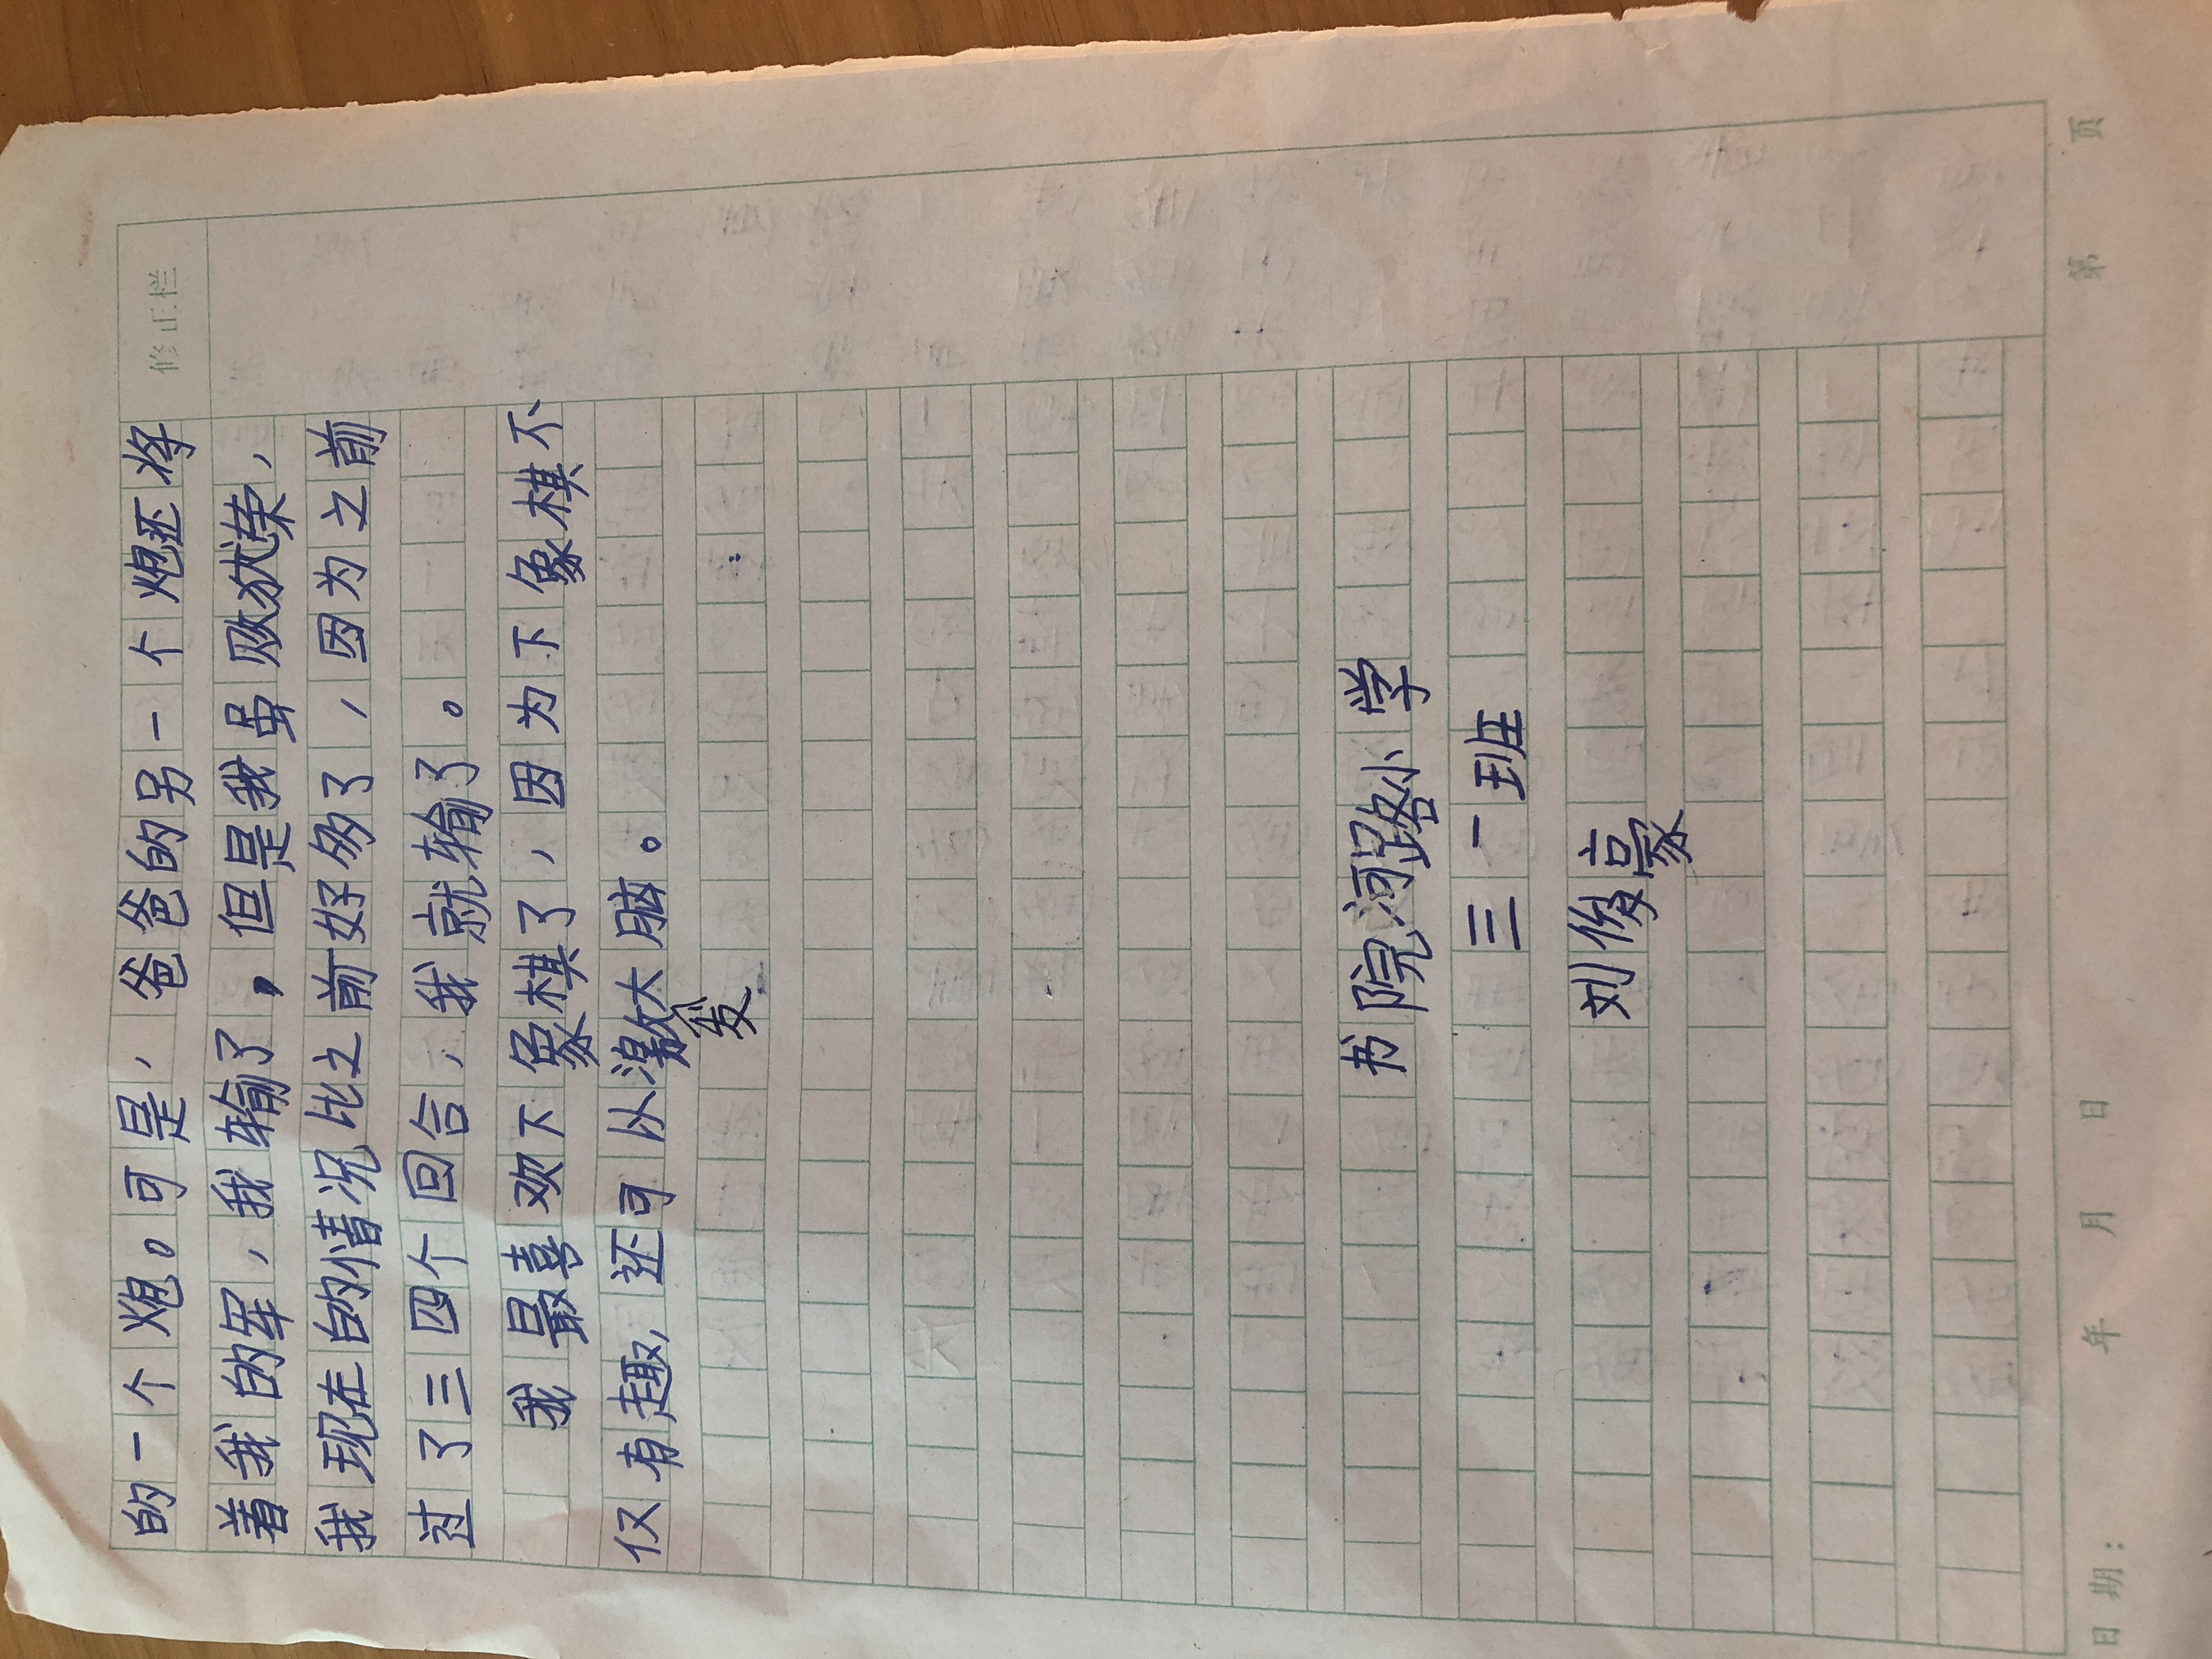 修正栏
的一个炮。可是,爸爸的另一个炮还将
着我的军,我输了,但是我虽败犹荣,
我现在的情况比之前好多了,因为之前
过了三四个回合,我就输了。
我最喜欢下象棋了,因为下象棋不
仅有趣,还可以激大脑。
发
书院河路小学
三一班
刘俊豪
日期: 年 月 日 第 页